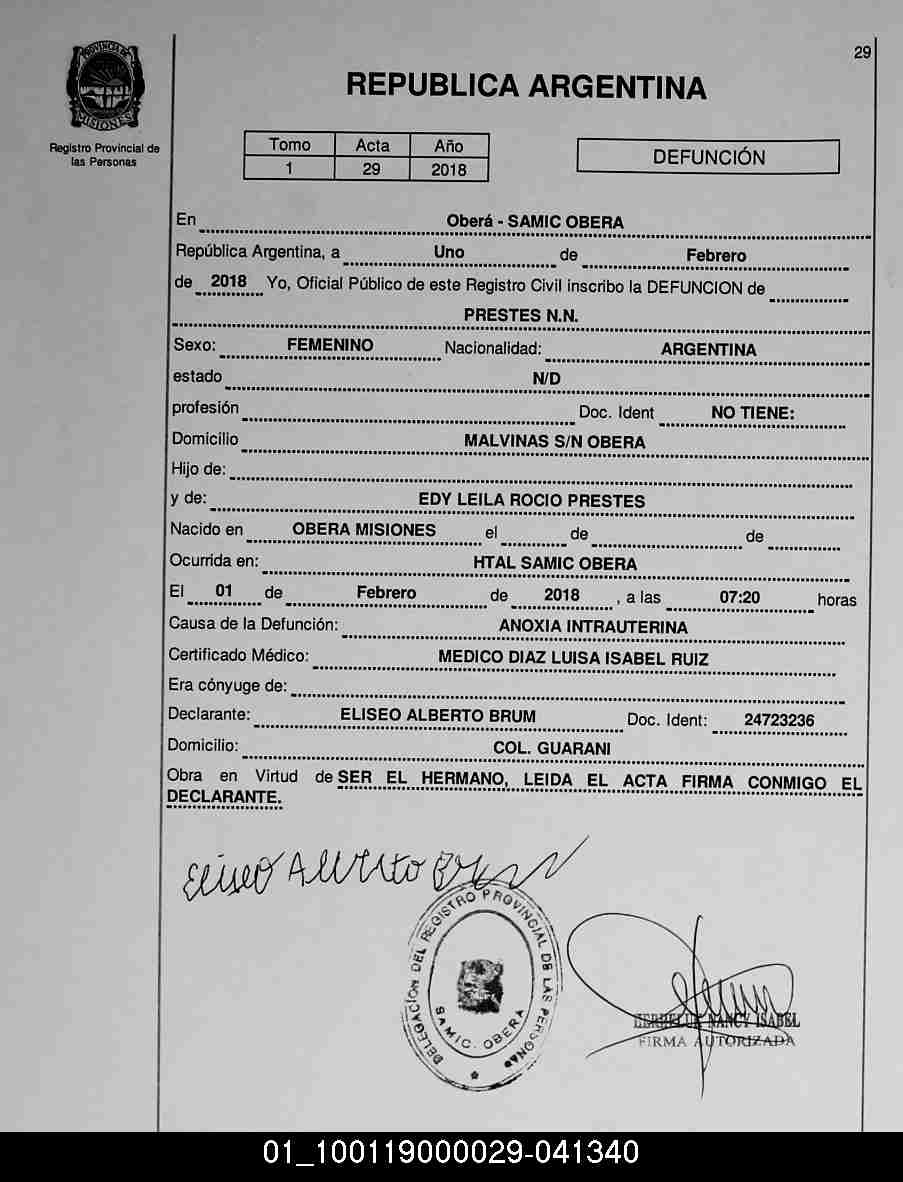 29
PROVINCIA DE
MISIONES
Registro Provincial de
las Personas
REPUBLICA ARGENTINA
Tomo Acta Año
1 29 2018
DEFUNCIÓN
En Oberá - SAMIC OBERA
República Argentina, a Uno de Febrero
de 2018 Yo, Oficial Público de este Registro Civil inscribo la DEFUNCION de
PRESTES N.N.
Sexo: FEMENINO Nacionalidad: ARGENTINA
estado N/D
profesión Doc. Ident NO TIENE:
Domicilio MALVINAS S/N OBERA
Hijo de:
y de: EDY LEILA ROCIO PRESTES
Nacido en OBERA MISIONES el de de
Ocurrida en: HTAL SAMIC OBERA
El 01 de Febrero de 2018 , a las 07:20 horas
Causa de la Defunción: ANOXIA INTRAUTERINA
Certificado Médico: MEDICO DIAZ LUISA ISABEL RUIZ
Era cónyuge de:
Declarante: ELISEO ALBERTO BRUM Doc. Ident: 24723236
Domicilio: COL. GUARANI
Obra en Virtud de SER EL HERMANO, LEIDA EL ACTA FIRMA CONMIGO EL
DECLARANTE.
Eliseo Alberto Brum
DELEGACION DEL REGISTRO PROVINCIAL DE LAS PERSONAS
SAMIC. OBERA
NANCY ISABEL
FIRMA AUTORIZADA
01_100119000029-041340